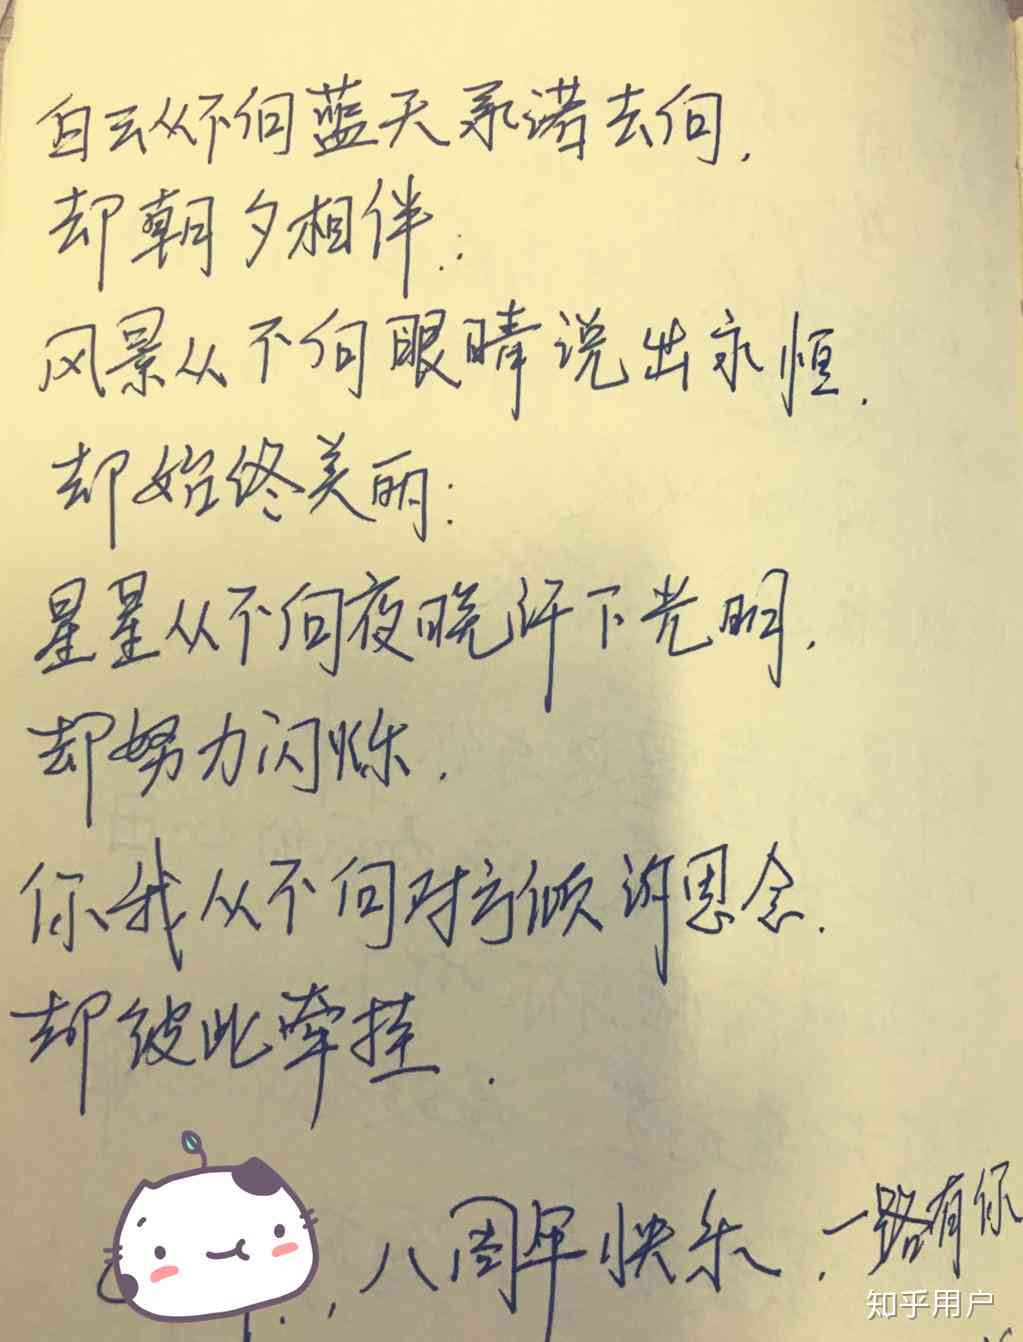 白云从不向蓝天承诺去向,
却朝夕相伴.:
风景从不向眼睛说出永恒.
却始终美丽:
星星从不向夜晚许下光明.
却努力闪烁.
你我从不向对方倾诉思念.
却彼此牵挂.
,八周年快乐,一路有你
知乎用户